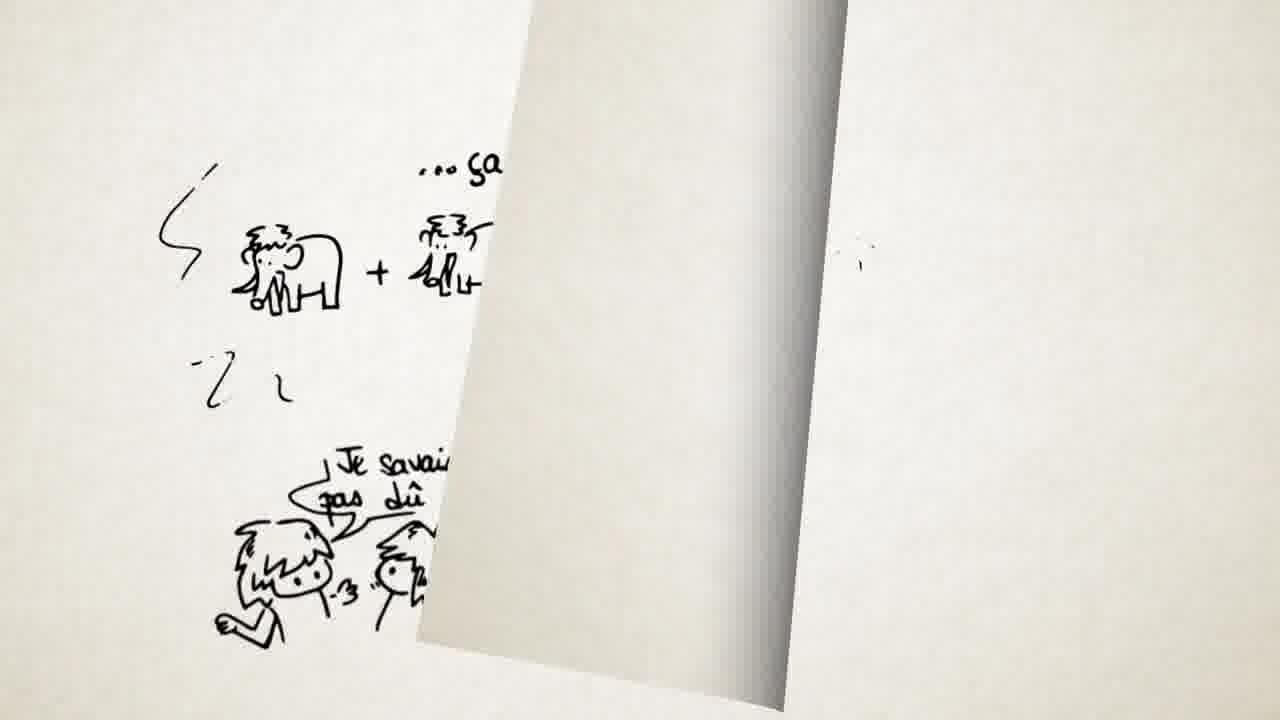 ...ça
+
Je savai
pas dû